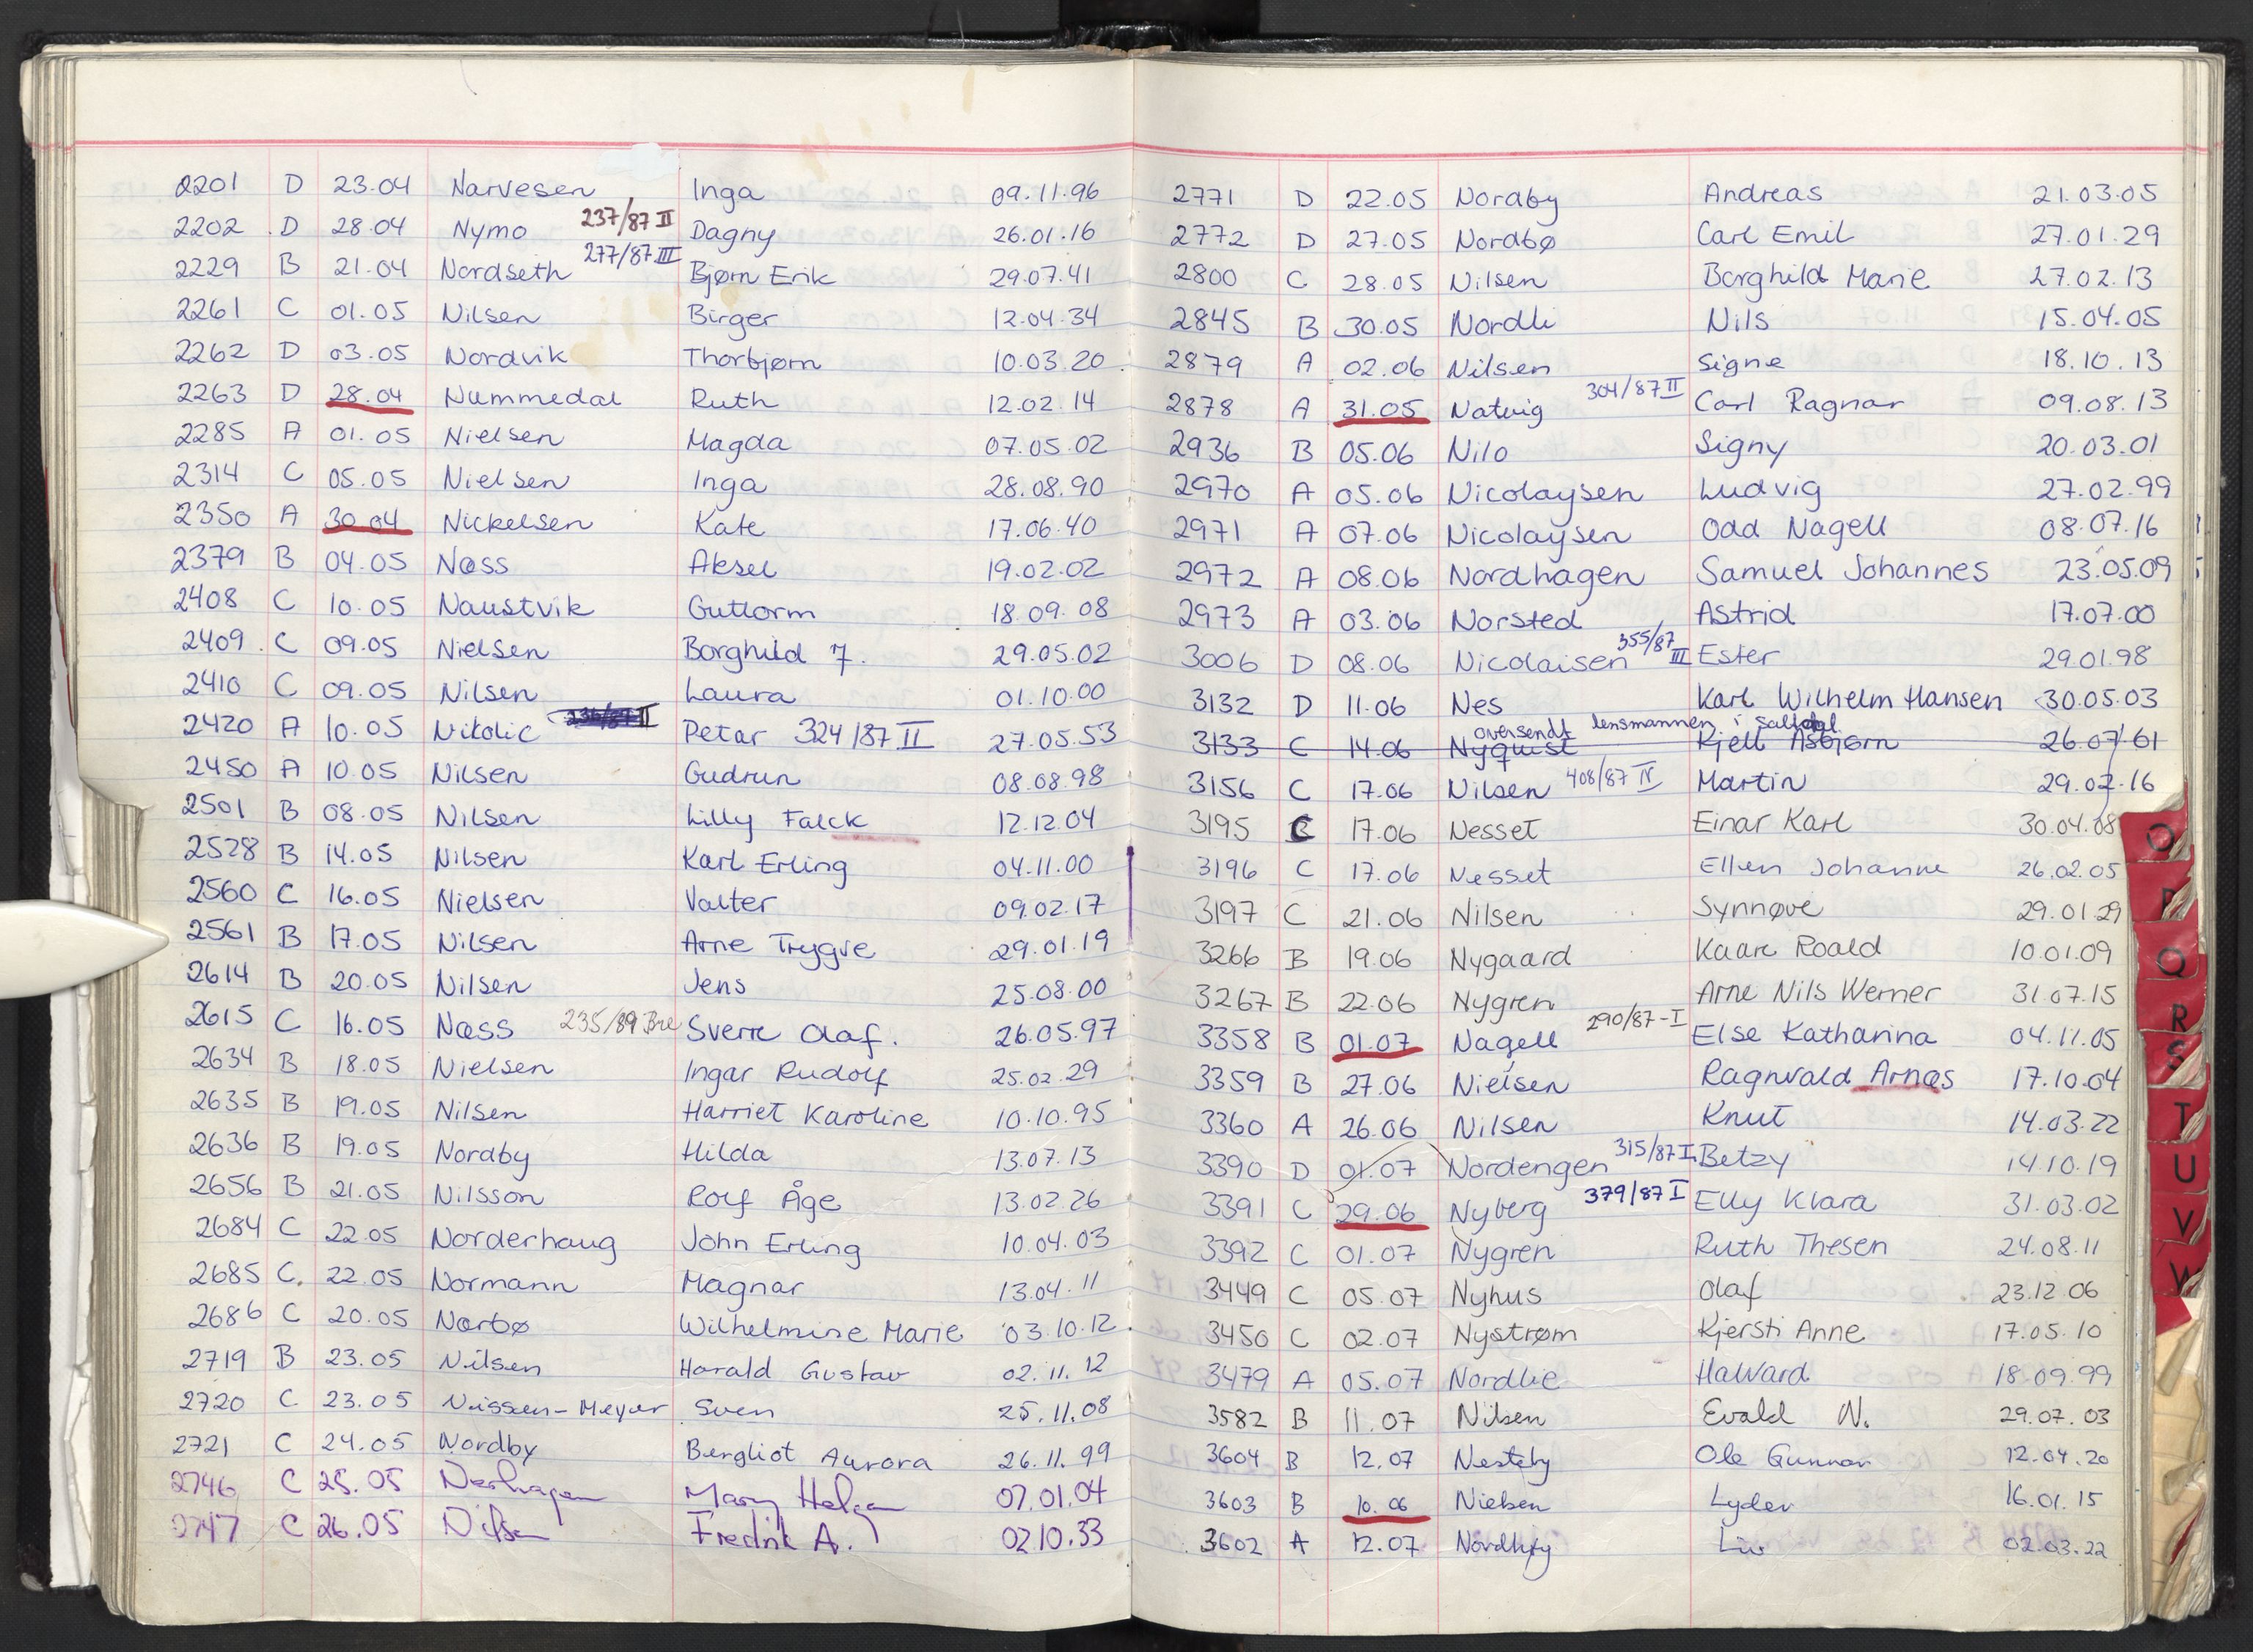 2201 D 23.04 Narvesen Inga 09.11.96
2202 D 28.04 Nymo 237/87 II Dagny 26.01.16
2229 B 21.04 Nordseth 277/87 III Bjørn Erik 29.07.41
2261 C 01.05 Nilsen Birger 12.04.34
2262 D 03.05 Nordvik Thorbjørn 10.03.20
2263 D 28.04 Nummedal Ruth 12.02.14
2285 A 01.05 Nielsen Magda 07.05.02
2314 C 05.05 Nielsen Inga 28.08.90
2350 A 30.04 Nickelsen Kate 17.06.40
2379 B 04.05 Næss Aksel 19.02.02
2408 C 10.05 Naustvik Guttorm 18.09.08
2409 C 09.05 Nielsen Borghild 7. 29.05.02
2410 C 09.05 Nilsen Laura 01.10.00
2420 A 10.05 Nikolic 236/87 II Petar 324/87 II 27.05.53
2450 A 10.05 Nilsen Gudrun 08.08.98
2501 B 08.05 Nilsen Lilly Falck 12.12.04
2528 B 14.05 Nilsen Karl Erling 04.11.00
2560 C 16.05 Nielsen Valter 09.02.17
2561 B 17.05 Nilsen Arne Trygve 29.01.19
2614 B 20.05 Nilsen Jens 25.08.00
2615 C 16.05 Næss 235/89 Bre Sverre Olaf. 26.05.97
2634 B 18.05 Nielsen Ingar Rudolf 25.02.29
2635 B 19.05 Nilsen Harriet Karoline 10.10.95
2636 B 19.05 Nordby Hilda 13.07.13
2656 B 21.05 Nilsson Rolf Åge 13.02.26
2684 C 22.05 Norderhaug John Erling 10.04.03
2685 C. 22.05 Normann Magnar 13.04.11
2686 C 20.05 Nærbø Wilhelmine Marie 03.10.12
2719 B 23.05 Nilsen Harald Gustav 02.11.12
2720 C 23.05 Nissen-Meyer Sven 25.11.08
2721 C 24.05 Nordby Bergliot Aurora 26.11.99
2746 C 25.05 Nerhagen Mary Helga 07.01.04
2747 C 26.05 Nilsen Fredrik A. 02.10.33
2771 D 22.05 Nordby Andreas 21.03.05
2772 D 27.05 Nordbø Carl Emil 27.01.29
2800 C 28.05 Nilsen Borghild Marie 27.02.13
2845 B 30.05 Nordli Nils 15.04.05
2879 A 02.06 Nilsen Signe 18.10.13
2878 A 31.05 Natvig 304/87 II Carl Ragnar 09.08.13
2936 B 05.06 Nilo Signy 20.03.01
2970 A 05.06 Nicolaysen Ludvig 27.02.99
2971 A 07.06 Nicolaysen Odd Nagell 08.07.16
2972 A 08.06 Nordhagen Samuel Johannes 23.05.09
2973 A 03.06 Norsted Astrid 17.07.00
3006 D 08.06 Nicolaisen 355/87 III Ester 29.01.98
3132 D 11.06 Nes Karl Wilhelm Hansen 30.05.03
oversendt lensmannen i Saltdal
3133 C 14.06 Nyquist Kjell Asbjørn 26.07.61
3156 C 17.06 Nilsen 408/87 IV Martin 29.02.16
3195 C 17.06 Nesset Einar Karl 30.04.08
3196 C 17.06 Nesset Ellen Johanne 26.02.05
3197 C 21.06 Nilsen Synnøve 29.01.29
3266 B 19.06 Nygaard Kaare Roald 10.01.09
3267 B 22.06 Nygren Arne Nils Werner 31.07.15
3358 B 01.07 Nagell 290/87-I Else Katharina 04.11.05
3359 B 27.06 Nielsen Ragnvald Arnøs 17.10.04
3360 A 26.06 Nilsen Knut 14.03.22
3390 D 01.07 Nordengen 315/87 I Betzy 14.10.19
3391 C 29.06 Nyberg 379/87 I Elly Klara 31.03.02
3392 C 01.07 Nygren Ruth Thesen 24.08.11
3449 C 05.07 Nyhus Olaf 23.12.06
3450 C 02.07 Nystrøm Kjersti Anne 17.05.10
3479 A 05.07 Nordlie Halvard 18.09.99
3582 B 11.07 Nilsen Evald N. 29.07.03
3604 B 12.07 Nesteby Ole Gunnar 12.04.20
3603 B 10.06 Nielsen Lyder 16.01.15
3602 A 12.07 Nordby Liv 02.03.22
O
P
Q
R
S
T
U
V
W